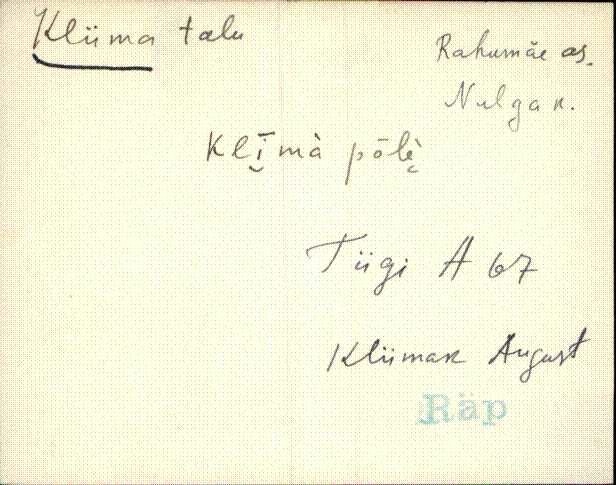 Kliima talu
Rahumäe as.
Nulga k.
Klīmà pōlè
Tiigi A 67
Kliiman August
Räp